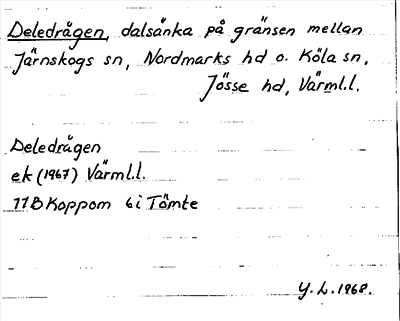 Deledrågen, dalsänka på gränsen mellan
Järnskogs sn, Nordmarks hd o. Köla sn,
Jösse hd, Värml.l.
Deledrågen
ek (1967) Värml.l.
11B Koppom 6i Tömte
Y.L. 1968.